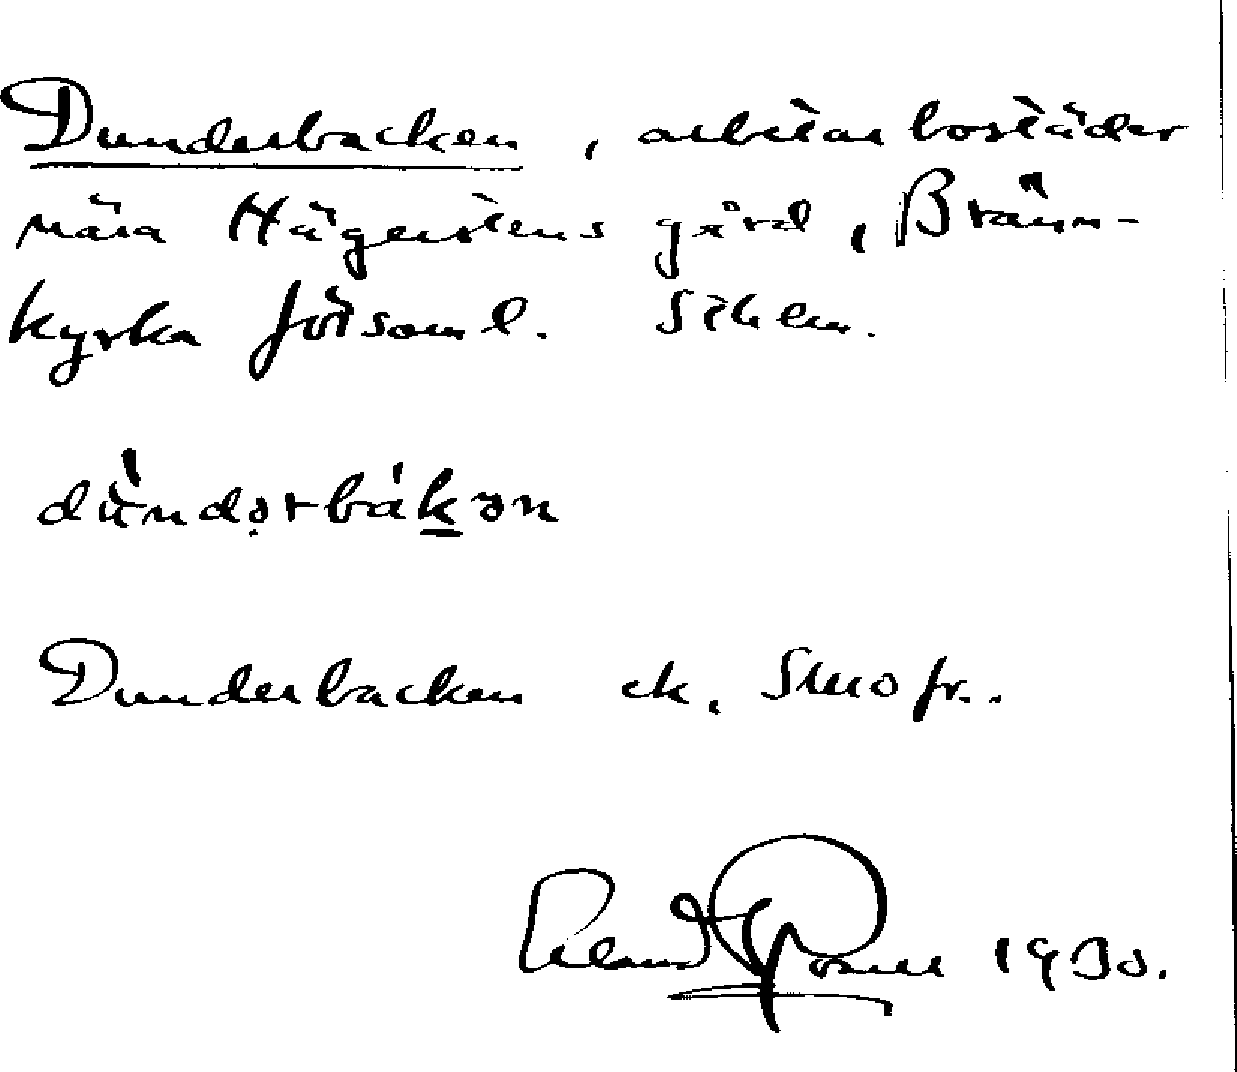 Dunderbacken, arbetarbostäder
nära Hägerstens gård, Bränn-
kyrka församl. Sthlm.
dùndərbákən
Dunderbacken ek.
1930.